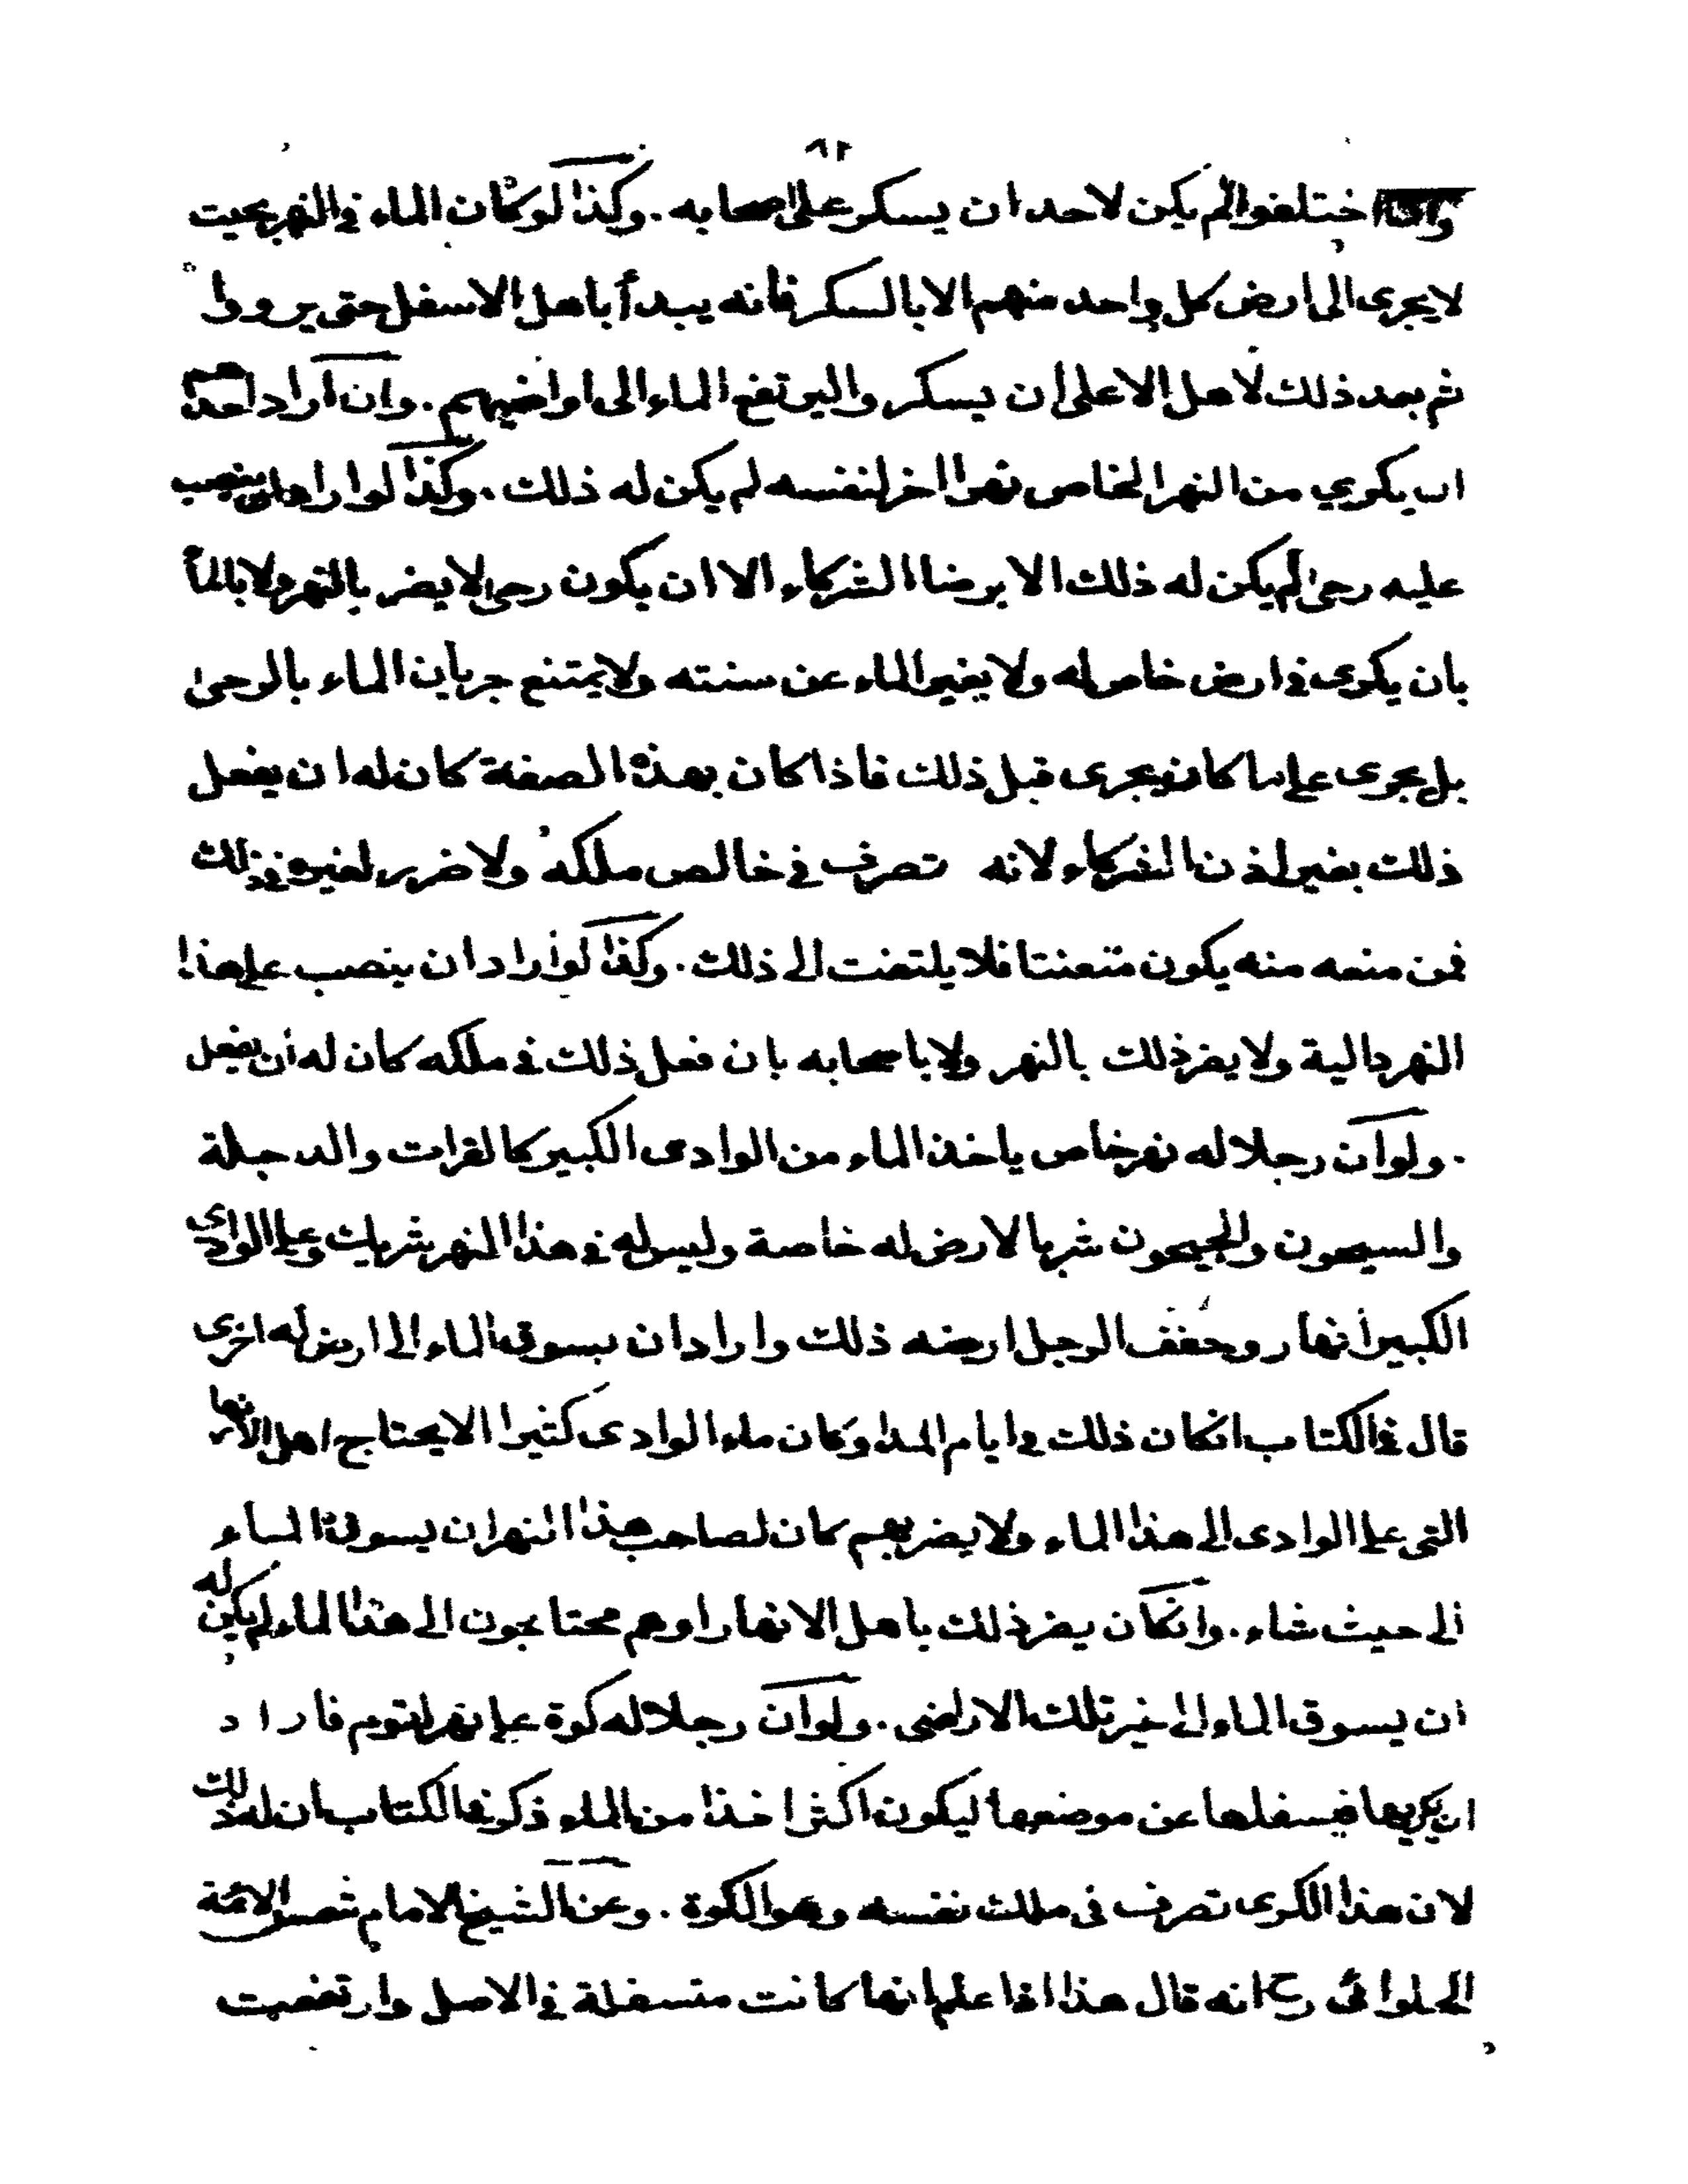 ٩٢
وان اختلفوا لم يكن لاحد ان يسكر على اصحابه . وكذا لو كان الماء في النهر بحيت
لا يجرى الى ارض كل واحد منهم الا بالسكر فانه يبدأ باهل الاسفل حتى يرووا
ثم بعد ذلك لاهل الاعلى ان يسكر واليرتفع الماء الى اراضيهم . وان اراد احد
ان يكوي من النهر الخاص نهرا اخر لنفسه لم يكن له ذلك . وكذا لو اراد ان ينصب
عليه رحى لم يكن له ذلك الا برضا الشركاء الا ان يكون رحى لا يضر بالنهر ولا بالماء
بان يكوى في ارض خاص له ولا يغير الماء عن سنته ولا يمتنع جريان الماء بالرحى
بل يجرى على ما كان يجرى قبل ذلك فاذا كان بهذه الصفة كان له ان يفعل
ذلك بغير اذن الشركاء لانه تصرف في خالص ملكه ولا ضرر لغيره في ذلك
فمن منعه منه يكون متعنتا فلا يلتفت الى ذلك . وكذا لو اراد ان ينصب على هذا
النهر دالية ولا يضر ذلك بالنهر ولا باصحابه بان فعل ذلك في ملكه كان له ان يفعل
. ولو ان رجلا له نهر خاص ياخذ الماء من الوادى الكبير كالفرات والدجلة
والسيحون والجيحون شربا لارض له خاصة وليس له في هذا النهر شريك وعلى الوادى
الكبير انهار وجفف الرجل ارضه ذلك واراد ان يسوق الماء الى ارض له اخرى
قال في الكتاب ان كان ذلك في ايام المد او كان ماء الوادى كثيرا لا يحتاج اهل الانهار
التى على الوادى الى هذا الماء ولا يضر بهم كان لصاحب هذا النهر ان يسوق الماء
الى حيث شاء . وان كان يضر ذلك باهل الانهار او هم محتاجون الى هذا الماء لم يكن له
ان يسوق الماء الى غير تلك الاراضى . ولو ان رجلا له كوة على نهر لقوم فاراد
ان يكريها فيسفلها عن موضعها ليكون اكثر اخذا من الماء ذكر في الكتاب ان له ذلك
لان هذا الكرى تصرف فى ملك نفسه وهو الكوة . وعن الشيخ الامام شمس الائمة
الحلوائى رح انه قال هذا اذا علم انها كانت متسفلة في الاصل وارتفعت